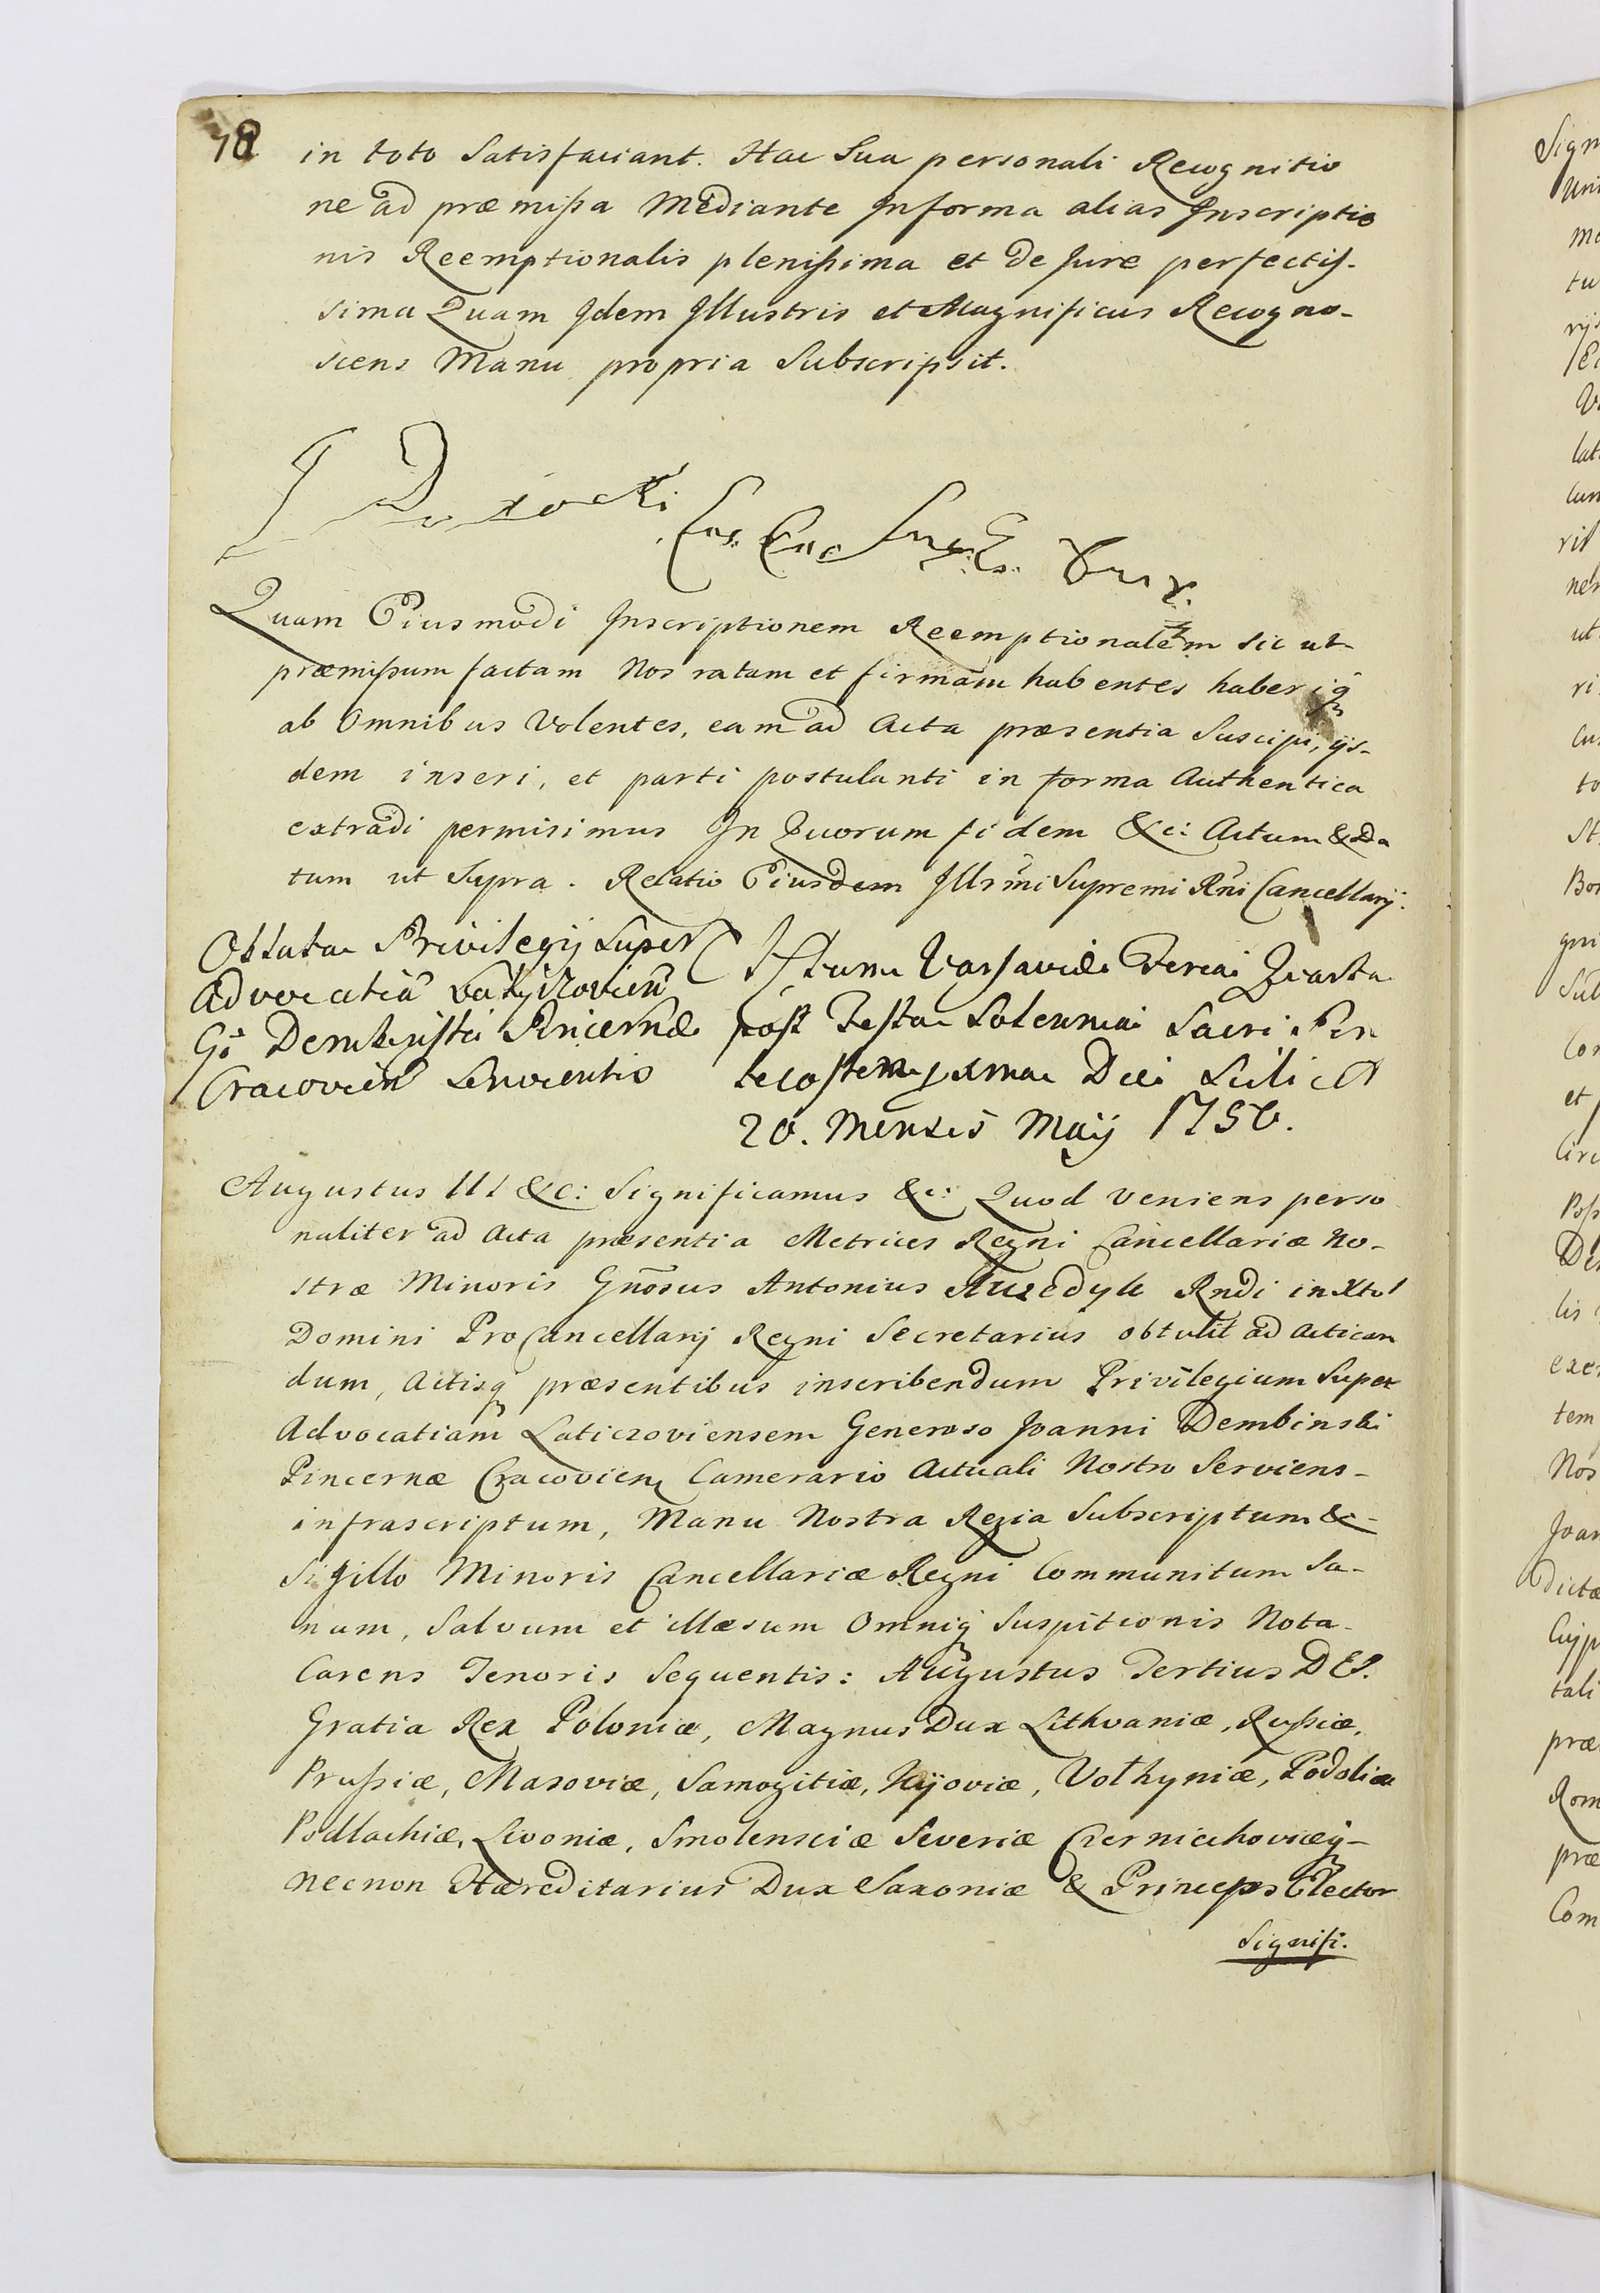 78
in toto Satisfaciant. Hac Sua personali Recognitio
ne ad præmissa Mediante Informa alias Inscriptio
nis Reemptionalis plenissima et de jure perfectis-
sima Quam Idem Illustris et Magnificus Recogno-
scens Manu propria Subscripsit.
Quam Eiusmodi Inscriptionem Reemptionalem sic ut
præmissum factam Nos ratam et firmam habentes haberiq̃
ab Omnibus Volentes, eam ad Acta præsentia Suscipi, ijs-
dem inseri, et parti postulanti in forma Authentica
extradi permisimus In Quorum fidem &c: Actum & Da
tum ut Supra. Relatio Eiusdem Illsm̃i Supremi Rñi Cancellarij.
Oblata Privilegij Super
Advocatiã Latyczovien̄
Gõ Dembinski Pincernæ
Cracovien̄ Servientis
Actum Varsaviæ Feria Quarta
post Festa Solennia Sacri Pen
tecostem proxma Die Scilicet
20. Mensis Maij 1750.
Augustus III &c: Significamus &c: Quod Veniens perso
naliter ad Acta præsentia Metrices Regni Cancellariæ No-
stræ Minoris Gñosus Antonius Rndi in Xto
Domini ProCancellarij Regni Secretarius obtulit ad Actican
dum, Actisq̃ præsentibus inscribendum Privilegium Super
Advocatiam Laticzoviensem Generoso Joanni Dembinski
Pincernæ Cracovien Camerario Actuali Nostro Serviens-
infrascriptum, Manu Nostra Regia Subscriptum &-
Sigillo Minoris Cancellariæ Regni Communitum Sa-
num, Salvum et illæsum Omniq̃ Suspitionis Nota
Carens Tenoris Sequentis: Augustus Tertius DEI.
Gratia Rex Poloniæ, Magnus Dux Lithvaniæ, Russiæ,
Prussiæ, Masoviæ, Samogitiæ, Kijoviæ, Volhyniæ, Podoliæ
Podlachiæ, Livoniæ, Smolensciæ Severiæ Czerniechoviæq̃-
necnon Hæreditarius Dux Saxoniæ & Princeps Elector
Signifi.